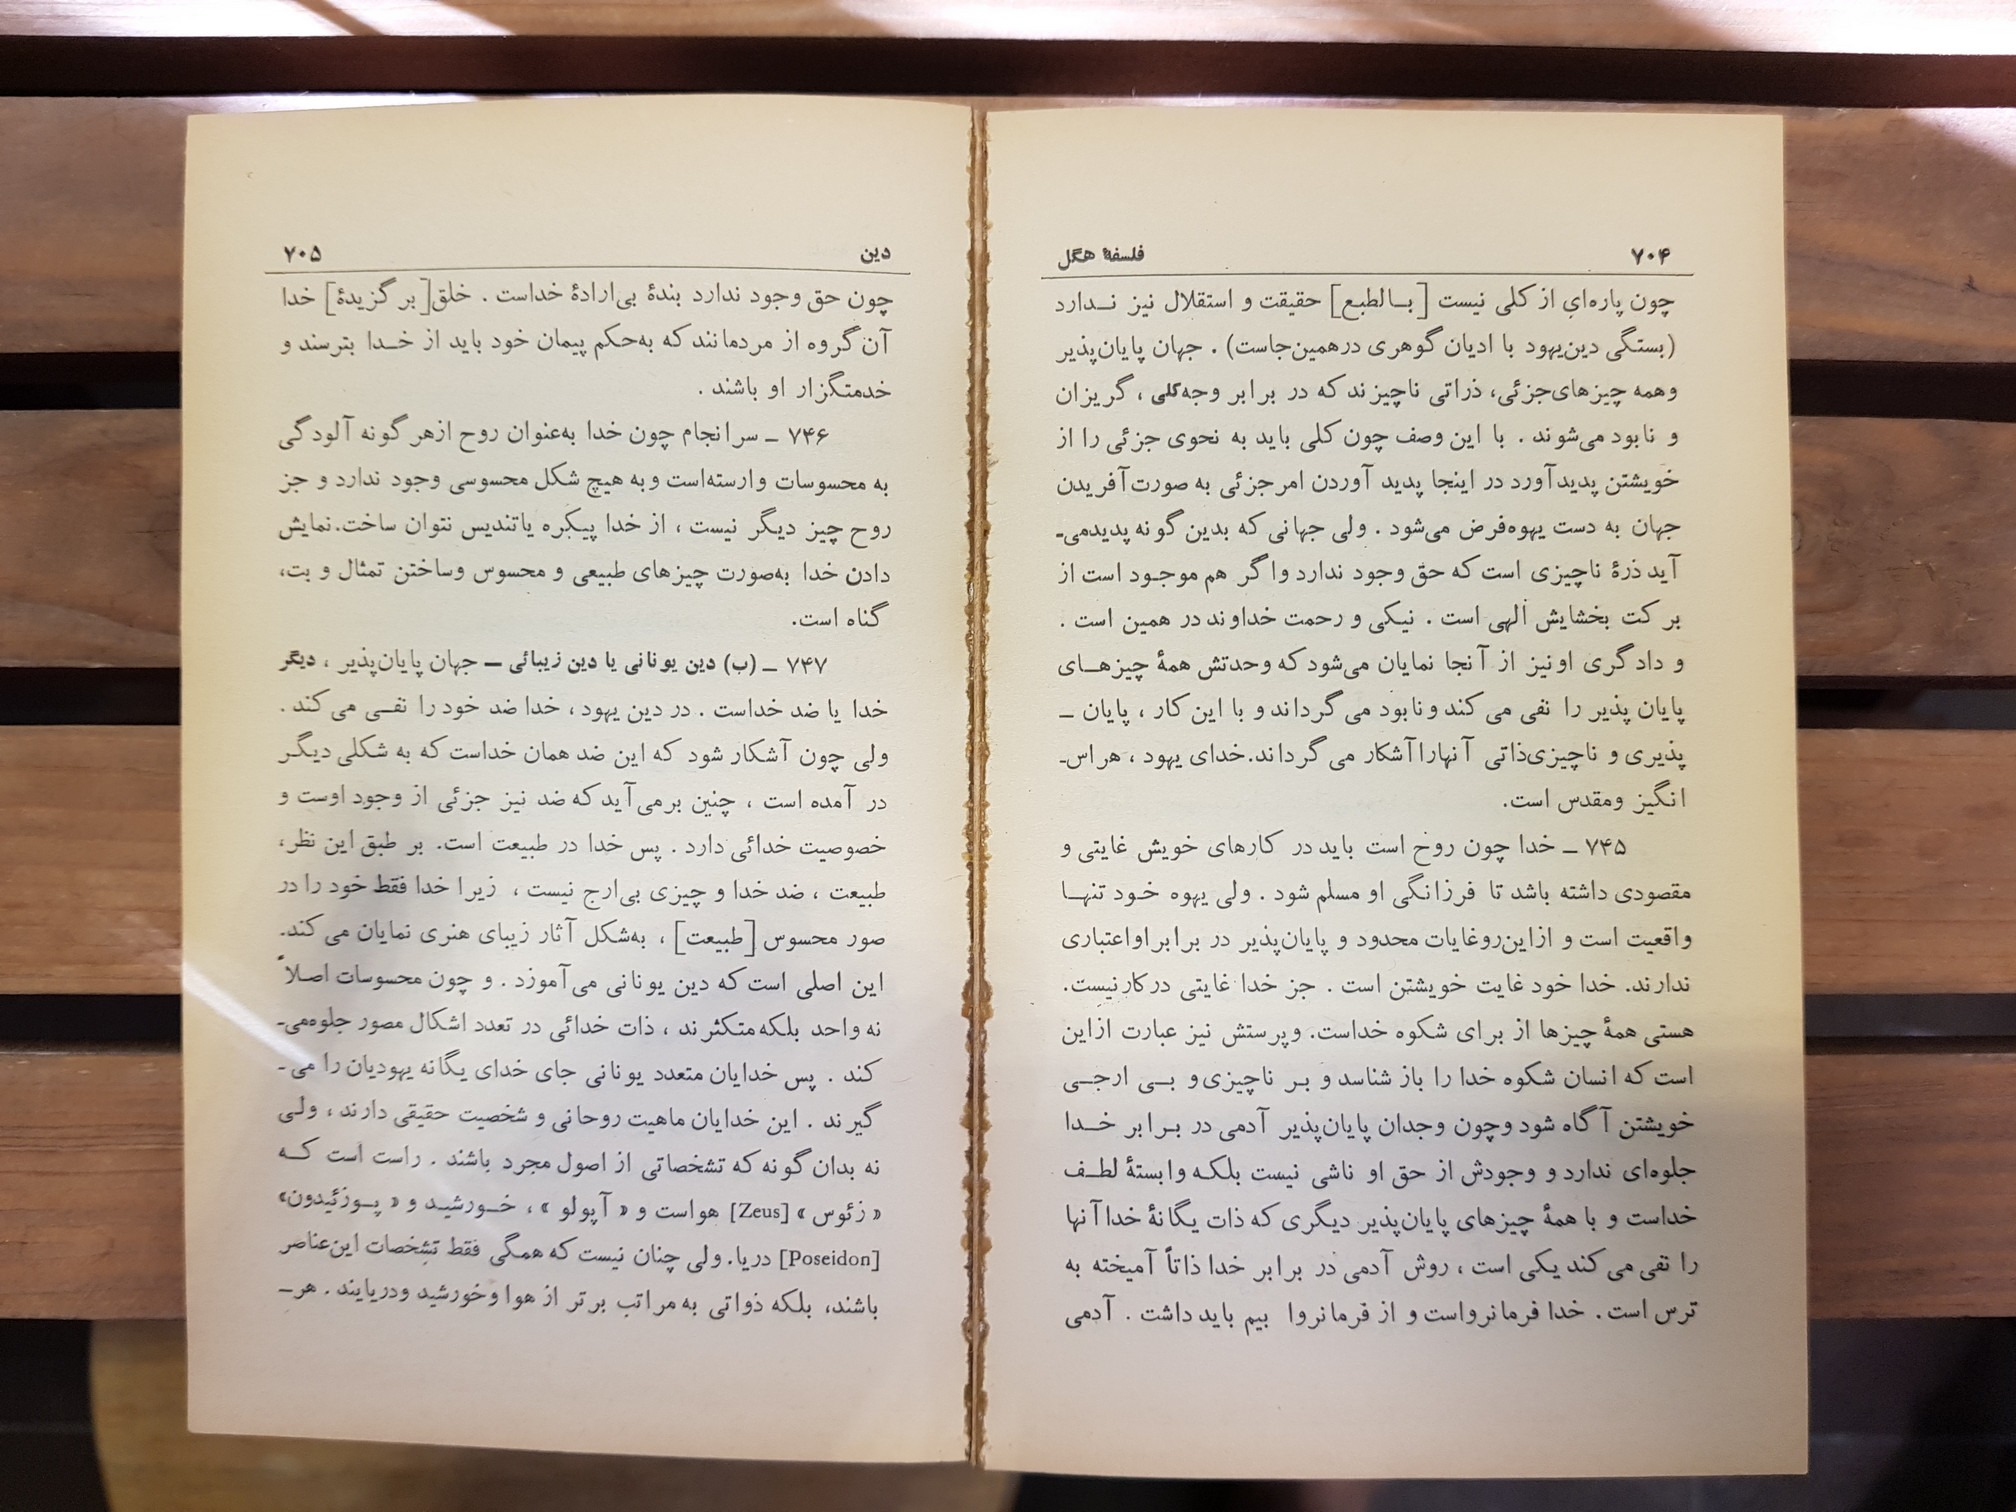 ۷۰۴ فلسفهٔ هگل
چون پاره‌ای از کلی نیست [بالطبع] حقیقت و استقلال نیز ندارد
(بستگی دین‌یهود با ادیان گوهری درهمین‌جاست) . جهان پایان‌پذیر
وهمه چیزهای‌جزئی، ذراتی ناچیزند که در برابر وجه‌کلی ، گریزان
و نابود می‌شوند . با این وصف چون کلی باید به نحوی جزئی را از
خویشتن پدیدآورد در اینجا پدید آوردن امرجزئی به صورت‌آفریدن
جهان به دست یهوه‌فرض می‌شود . ولی جهانی که بدین گونه پدیدمی-
آید ذرهٔ ناچیزی است که حق وجود ندارد واگر هم موجود است از
برکت بخشایش الهی است . نیکی و رحمت خداوند در همین است .
و دادگری اونیز از آنجا نمایان می‌شود که وحدتش همهٔ چیزهای
پایان پذیر را نفی می کند ونابود می گرداند و با این کار ، پایان –
پذیری و ناچیزی‌ذاتی آنهارا آشکار می گرداند.خدای یهود ، هراس-
انگیز ومقدس است.
۷۴۵ – خدا چون روح است باید در کارهای خویش غایتی و
مقصودی داشته باشد تا فرزانگی او مسلم شود . ولی یهوه خود تنها
واقعیت است و ازاین‌روغایات محدود و پایان‌پذیر در برابر او اعتباری
ندارند. خدا خود غایت خویشتن است . جز خدا غایتی درکارنیست.
هستی همهٔ چیزها از برای شکوه خداست. وپرستش نیز عبارت ازاین
است که انسان شکوه خدا را باز شناسد و بر ناچیزی و بی ارجی
خویشتن آگاه شود وچون وجدان پایان‌پذیر آدمی در برابر خدا
جلوه‌ای ندارد و وجودش از حق او ناشی نیست بلکه وابستهٔ لطف
خداست و با همهٔ چیزهای پایان‌پذیر دیگری که ذات یگانهٔ خدا آنها
را نفی می کند یکی است ، روش آدمی در برابر خدا ذاتاً آمیخته به
ترس است . خدا فرمانرواست و از فرمانروا بیم باید داشت . آدمی
دین ۷۰۵
چون حق وجود ندارد بندهٔ بی‌ارادهٔ خداست . خلق [برگزیدهٔ] خدا
آن گروه از مردمانند که به‌حکم پیمان خود باید از خدا بترسند و
خدمتگزار او باشند .
۷۴۶ – سرانجام چون خدا به‌عنوان روح ازهر گونه آلودگی
به محسوسات وارسته‌است و به هیچ شکل محسوسی وجود ندارد و جز
روح چیز دیگر نیست ، از خدا پیکره یاتندیس نتوان ساخت.نمایش
دادن خدا به‌صورت چیزهای طبیعی و محسوس وساختن تمثال و بت،
گناه است.
۷۴۷ – (ب) دین یونانی یا دین زیبائی – جهان پایان‌پذیر ، دیگر
خدا یا ضد خداست . در دین یهود ، خدا ضد خود را نفی می کند .
ولی چون آشکار شود که این ضد همان خداست که به شکلی دیگر
در آمده است ، چنین برمی‌آید که ضد نیز جزئی از وجود اوست و
خصوصیت خدائی دارد . پس خدا در طبیعت است. بر طبق این نظر،
طبیعت ، ضد خدا و چیزی بی‌ارج نیست ، زیرا خدا فقط خود را در
صور محسوس [طبیعت] ، به‌شکل آثار زیبای هنری نمایان می کند.
این اصلی است که دین یونانی می‌آموزد . و چون محسوسات اصلاً
نه واحد بلکه متکثرند ، ذات خدائی در تعدد اشکال مصور جلوه‌می-
کند . پس خدایان متعدد یونانی جای خدای یگانه یهودیان را می -
گیرند . این خدایان ماهیت روحانی و شخصیت حقیقی دارند ، ولی
نه بدان گونه که تشخصاتی از اصول مجرد باشند . راست است که
« زئوس » [Zeus] هواست و « آپولو » ، خورشید و « پوزئیدون»
[Poseidon] دریا. ولی چنان نیست که همگی فقط تشخصات این‌عناصر
باشند، بلکه ذواتی به‌مراتب برتر از هوا وخورشید ودریایند . هر–